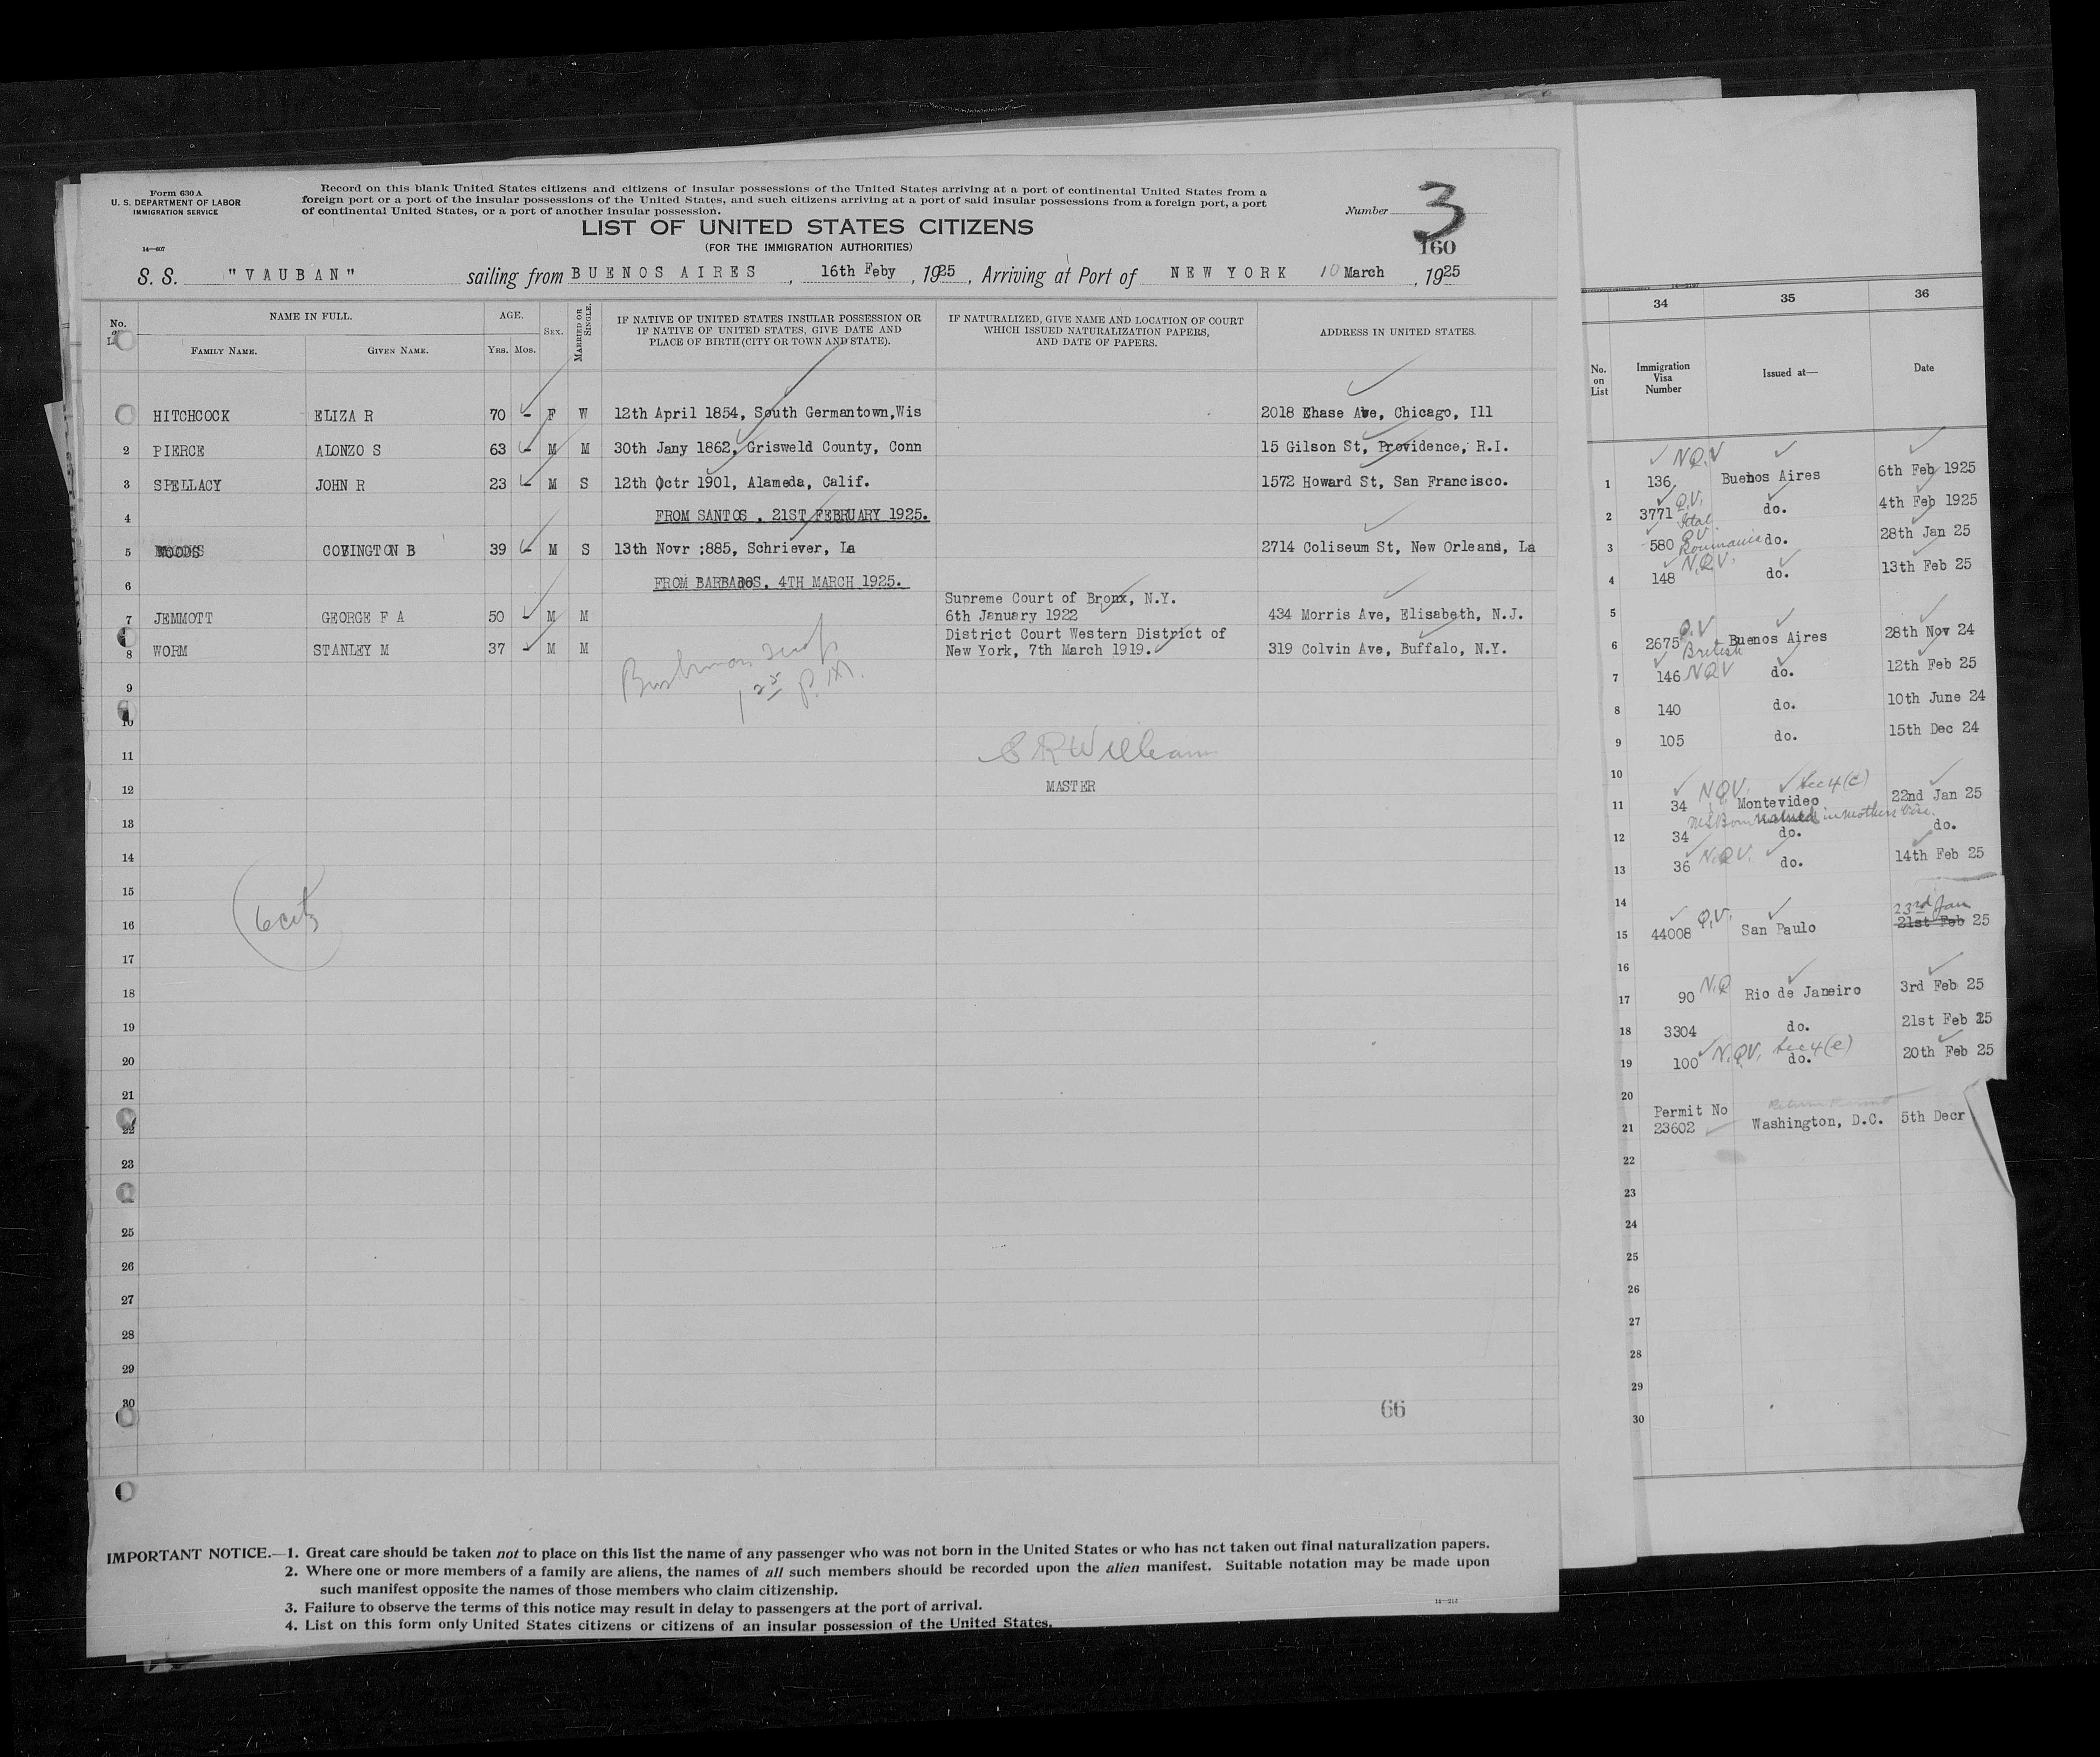 Form 630 A
U. S. DEPARTMENT OF LABOR
IMMIGRATION SERVICE
14—407
Record on this blank United States citizens and citizens of insular possessions of the United States arriving at a port of continental United States from a
foreign port or a port of the insular possessions of the United States, and such citizens arriving at a port of said insular possessions from a foreign port, a port
of continental United States, or a port of another insular possession.
Number 3
160
LIST OF UNITED STATES CITIZENS
(FOR THE IMMIGRATION AUTHORITIES)
S. S. "VAUBAN" sailing from BUENOS AIRES, 16th Feby, 1925, Arriving at Port of NEW YORK 10 March, 1925
No. NAME IN FULL. AGE. SEX. MARRIED OR SINGLE. IF NATIVE OF UNITED STATES INSULAR POSSESSION OR IF NATIVE OF UNITED STATES, GIVE DATE AND PLACE OF BIRTH (CITY OR TOWN AND STATE). IF NATURALIZED, GIVE NAME AND LOCATION OF COURT WHICH ISSUED NATURALIZATION PAPERS, AND DATE OF PAPERS. ADDRESS IN UNITED STATES.
FAMILY NAME. GIVEN NAME. YRS. MOS.
HITCHCOCK ELIZA R 70 - F W 12th April 1854, South Germantown,Wis 2018 Ehase Ave, Chicago, Ill
2 PIERCE ALONZO S 63 - M M 30th Jany 1862, Grisweld County, Conn 15 Gilson St, Providence, R.I.
3 SPELLACY JOHN R 23 - M S 12th Octr 1901, Alameda, Calif. 1572 Howard St, San Francisco.
4 FROM SANTOS , 21ST FEBRUARY 1925.
5 WOODS COVINGTON B 39 - M S 13th Novr :885, Schriever, La 2714 Coliseum St, New Orleans, La
6 FROM BARBADOS, 4TH MARCH 1925.
7 JEMMOTT GEORGE F A 50 - M M Supreme Court of Bronx, N.Y. 6th January 1922 434 Morris Ave, Elisabeth, N.J.
8 WORM STANLEY M 37 - M M District Court Western District of New York, 7th March 1919. 319 Colvin Ave, Buffalo, N.Y.
9
1 25 P.M.
10
11
MASTER
12
13
14
15
6 cits
16
17
18
19
20
21
22
23
25
26
27
28
29
30
66
IMPORTANT NOTICE.—1. Great care should be taken not to place on this list the name of any passenger who was not born in the United States or who has not taken out final naturalization papers.
2. Where one or more members of a family are aliens, the names of all such members should be recorded upon the alien manifest. Suitable notation may be made upon
such manifest opposite the names of those members who claim citizenship.
3. Failure to observe the terms of this notice may result in delay to passengers at the port of arrival.
4. List on this form only United States citizens or citizens of an insular possession of the United States.
34 35 36
No. on List Immigration Visa Number Issued at— Date
N.Q.V
1 136 Buenos Aires 6th Feb 1925
Q.V.
2 3771 do. 4th Feb 1925
Ital
Q.V
3 580 Roumania do. 28th Jan 25
N.Q.V.
4 148 do. 13th Feb 25
5
Q.V
6 2675 Buenos Aires 28th Nov 24
British
7 146 NQV do. 12th Feb 25
8 140 do. 10th June 24
9 105 do. 15th Dec 24
10
N.Q.V. Sec 4 (c)
11 34 Montevideo 22nd Jan 25
in mothers Vise.
12 34 do. do.
13 36 N.Q.V. do. 14th Feb 25
14
23rd Jan
15 44008 Q.V. San Paulo 21st Feb 25
16
17 90 N.Q Rio de Janeiro 3rd Feb 25
18 3304 do. 21st Feb 25
19 100 N.Q.V. Sec 4 (e) do. 20th Feb 25
20
21 Permit No 23602 Washington, D.C. 5th Decr
22
23
24
25
26
27
28
29
30